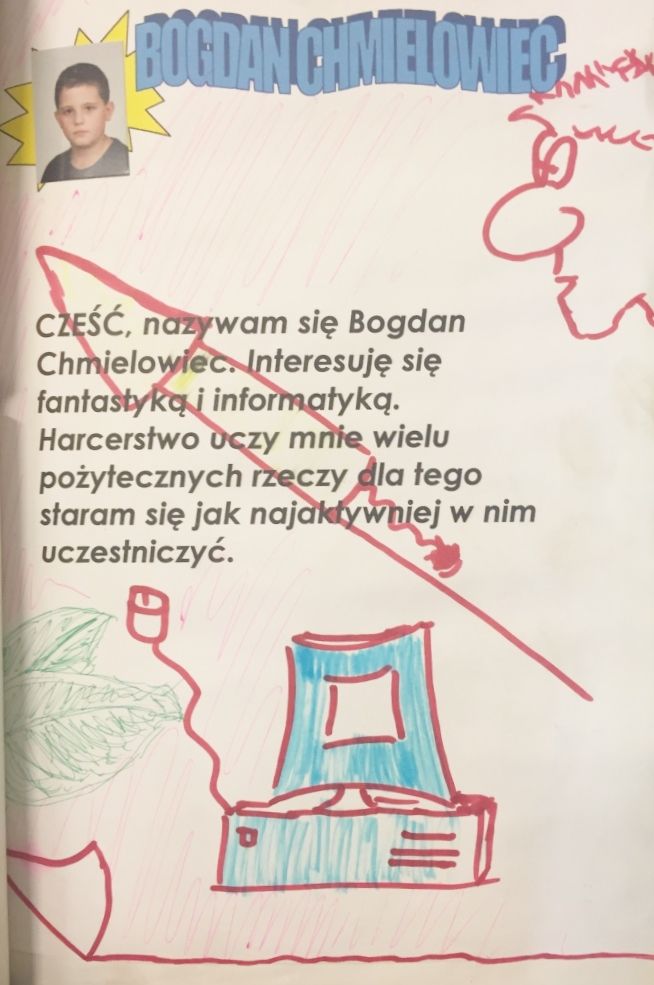 BOGDAN CHMIELOWIEC
CZEŚĆ, nazywam się Bogdan
Chmielowiec. Interesuję się
fantastyką i informatyką.
Harcerstwo uczy mnie wielu
pożytecznych rzeczy dla tego
staram się jak najaktywniej w nim
uczestniczyć.